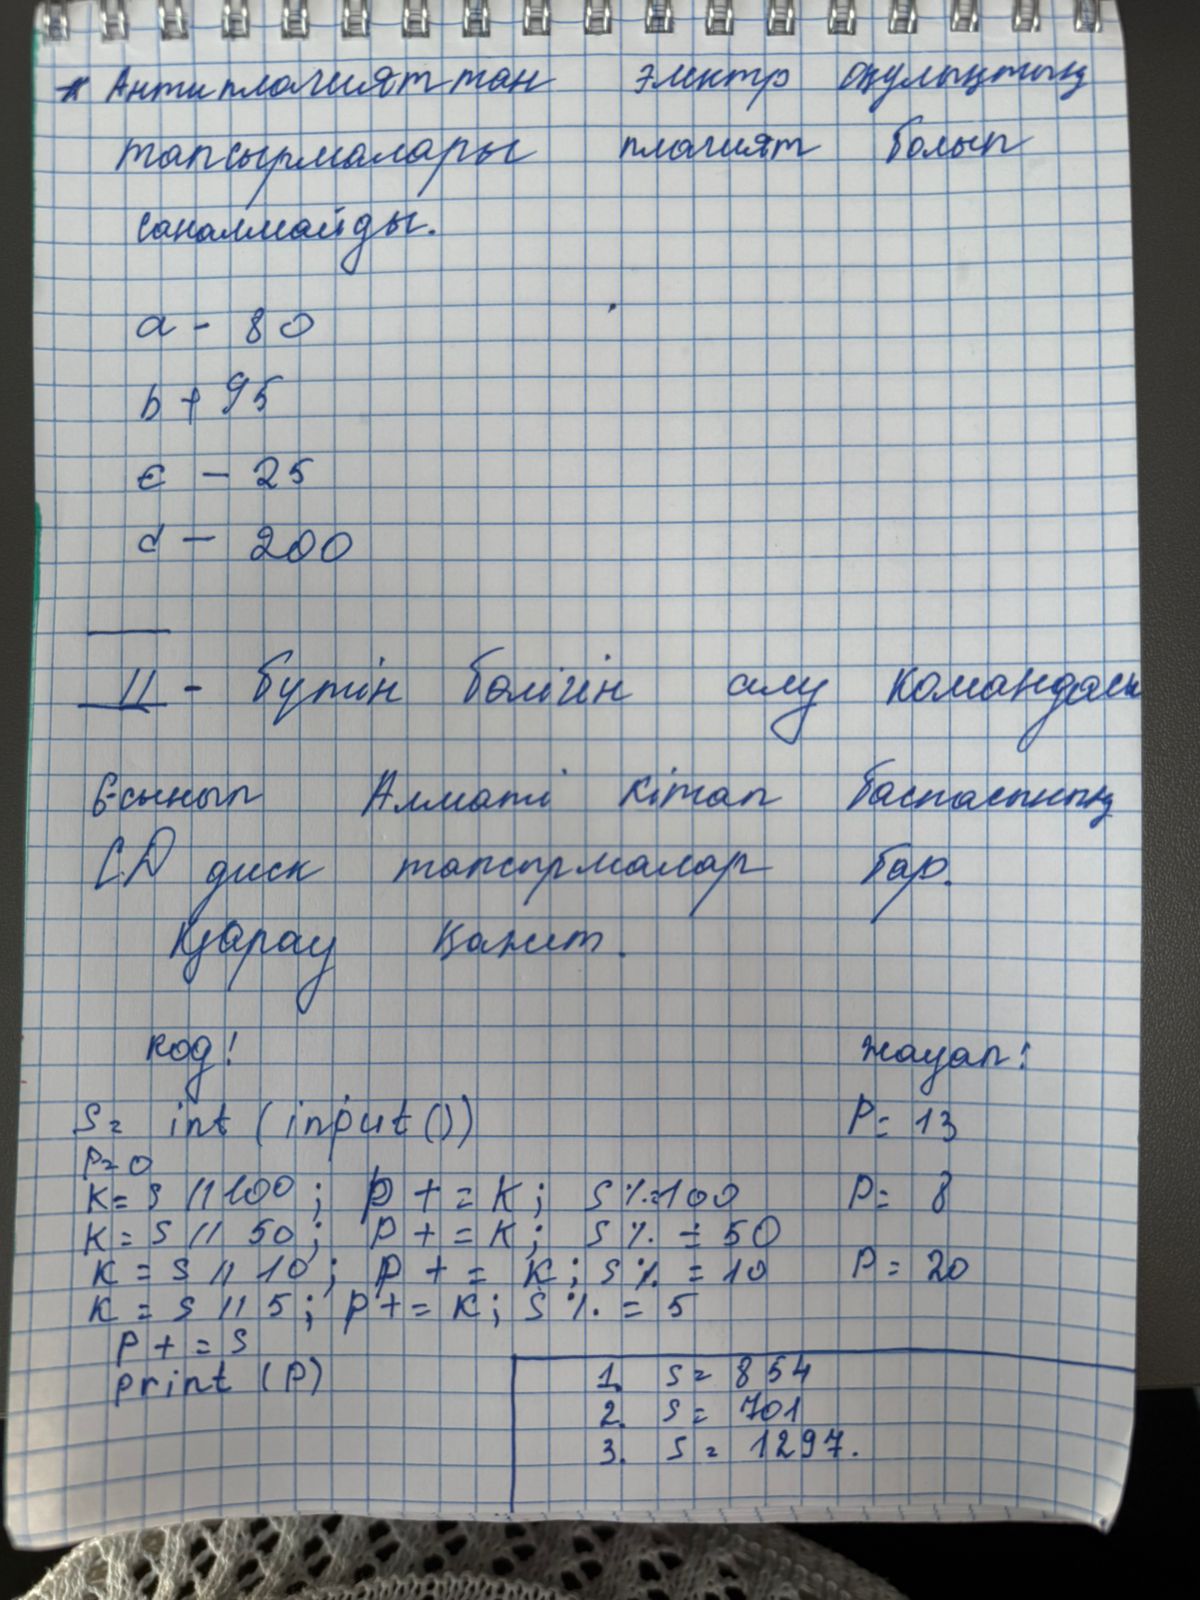 * Антиплагияттан электр оқулықтың
тапсырмалары плагият болып
саналмайды.
a - 80
b + 95
c - 25
d - 200
// - бүтін бөлігін алу командасы
6-сынып Алматі кітап баспасының
CD диск тапсырмалар бар.
Қарау қажет.
код! жауап:
S= int (input()) P= 13
P=0
K= S //100; P += K; S %=100 P= 8
K = S // 50; P += K; S % = 50
K = S // 10; P += K; S % = 10 P= 20
K = S // 5; P += K; S % = 5
P + = S
print (P)
1. S= 854
2. S= 701
3. S= 1297.